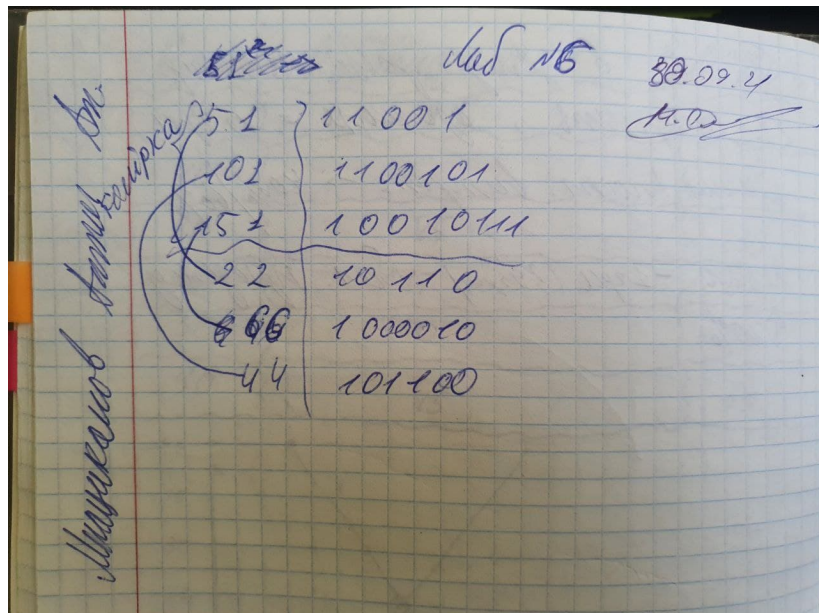 Лаб №5
30.09.21
51 11001
101 1100101
151 10010111
22 10110
66 1000010
44 101100